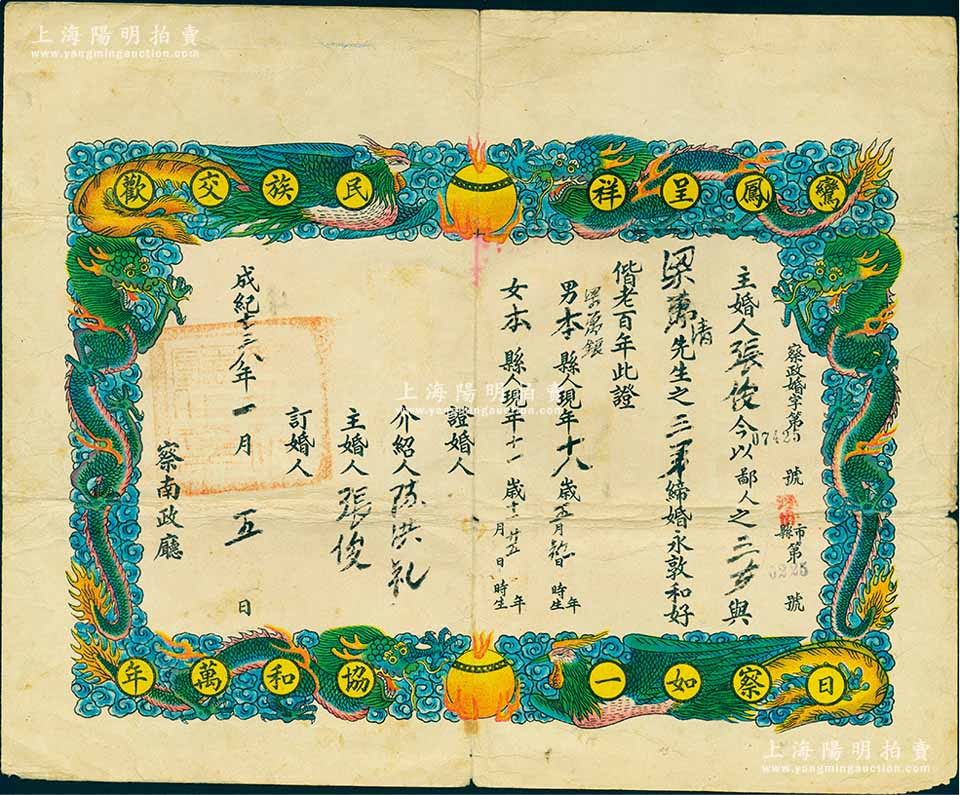 上海陽明拍賣
www.yangmingauction.com
鸞鳳呈祥
民族交歡
察政婚字第07425號
市縣第0225號
主婚人張俊今以鄙人之三女與
梁萬清先生之三弟締婚永敦和好
偕老百年此證
梁萬鎮
男本縣人現年十八歲五月 日 時生 年
女本縣人現年十一歲十月廿五日 時生 年
證婚人
介紹人陈洪礼
主婚人張俊
訂婚人
成紀七三八年一月五日
察南政廳
上海陽明拍賣
www.yangmingauction.com
日察如一
協和萬年
上海陽明拍賣
www.yangmingauction.com